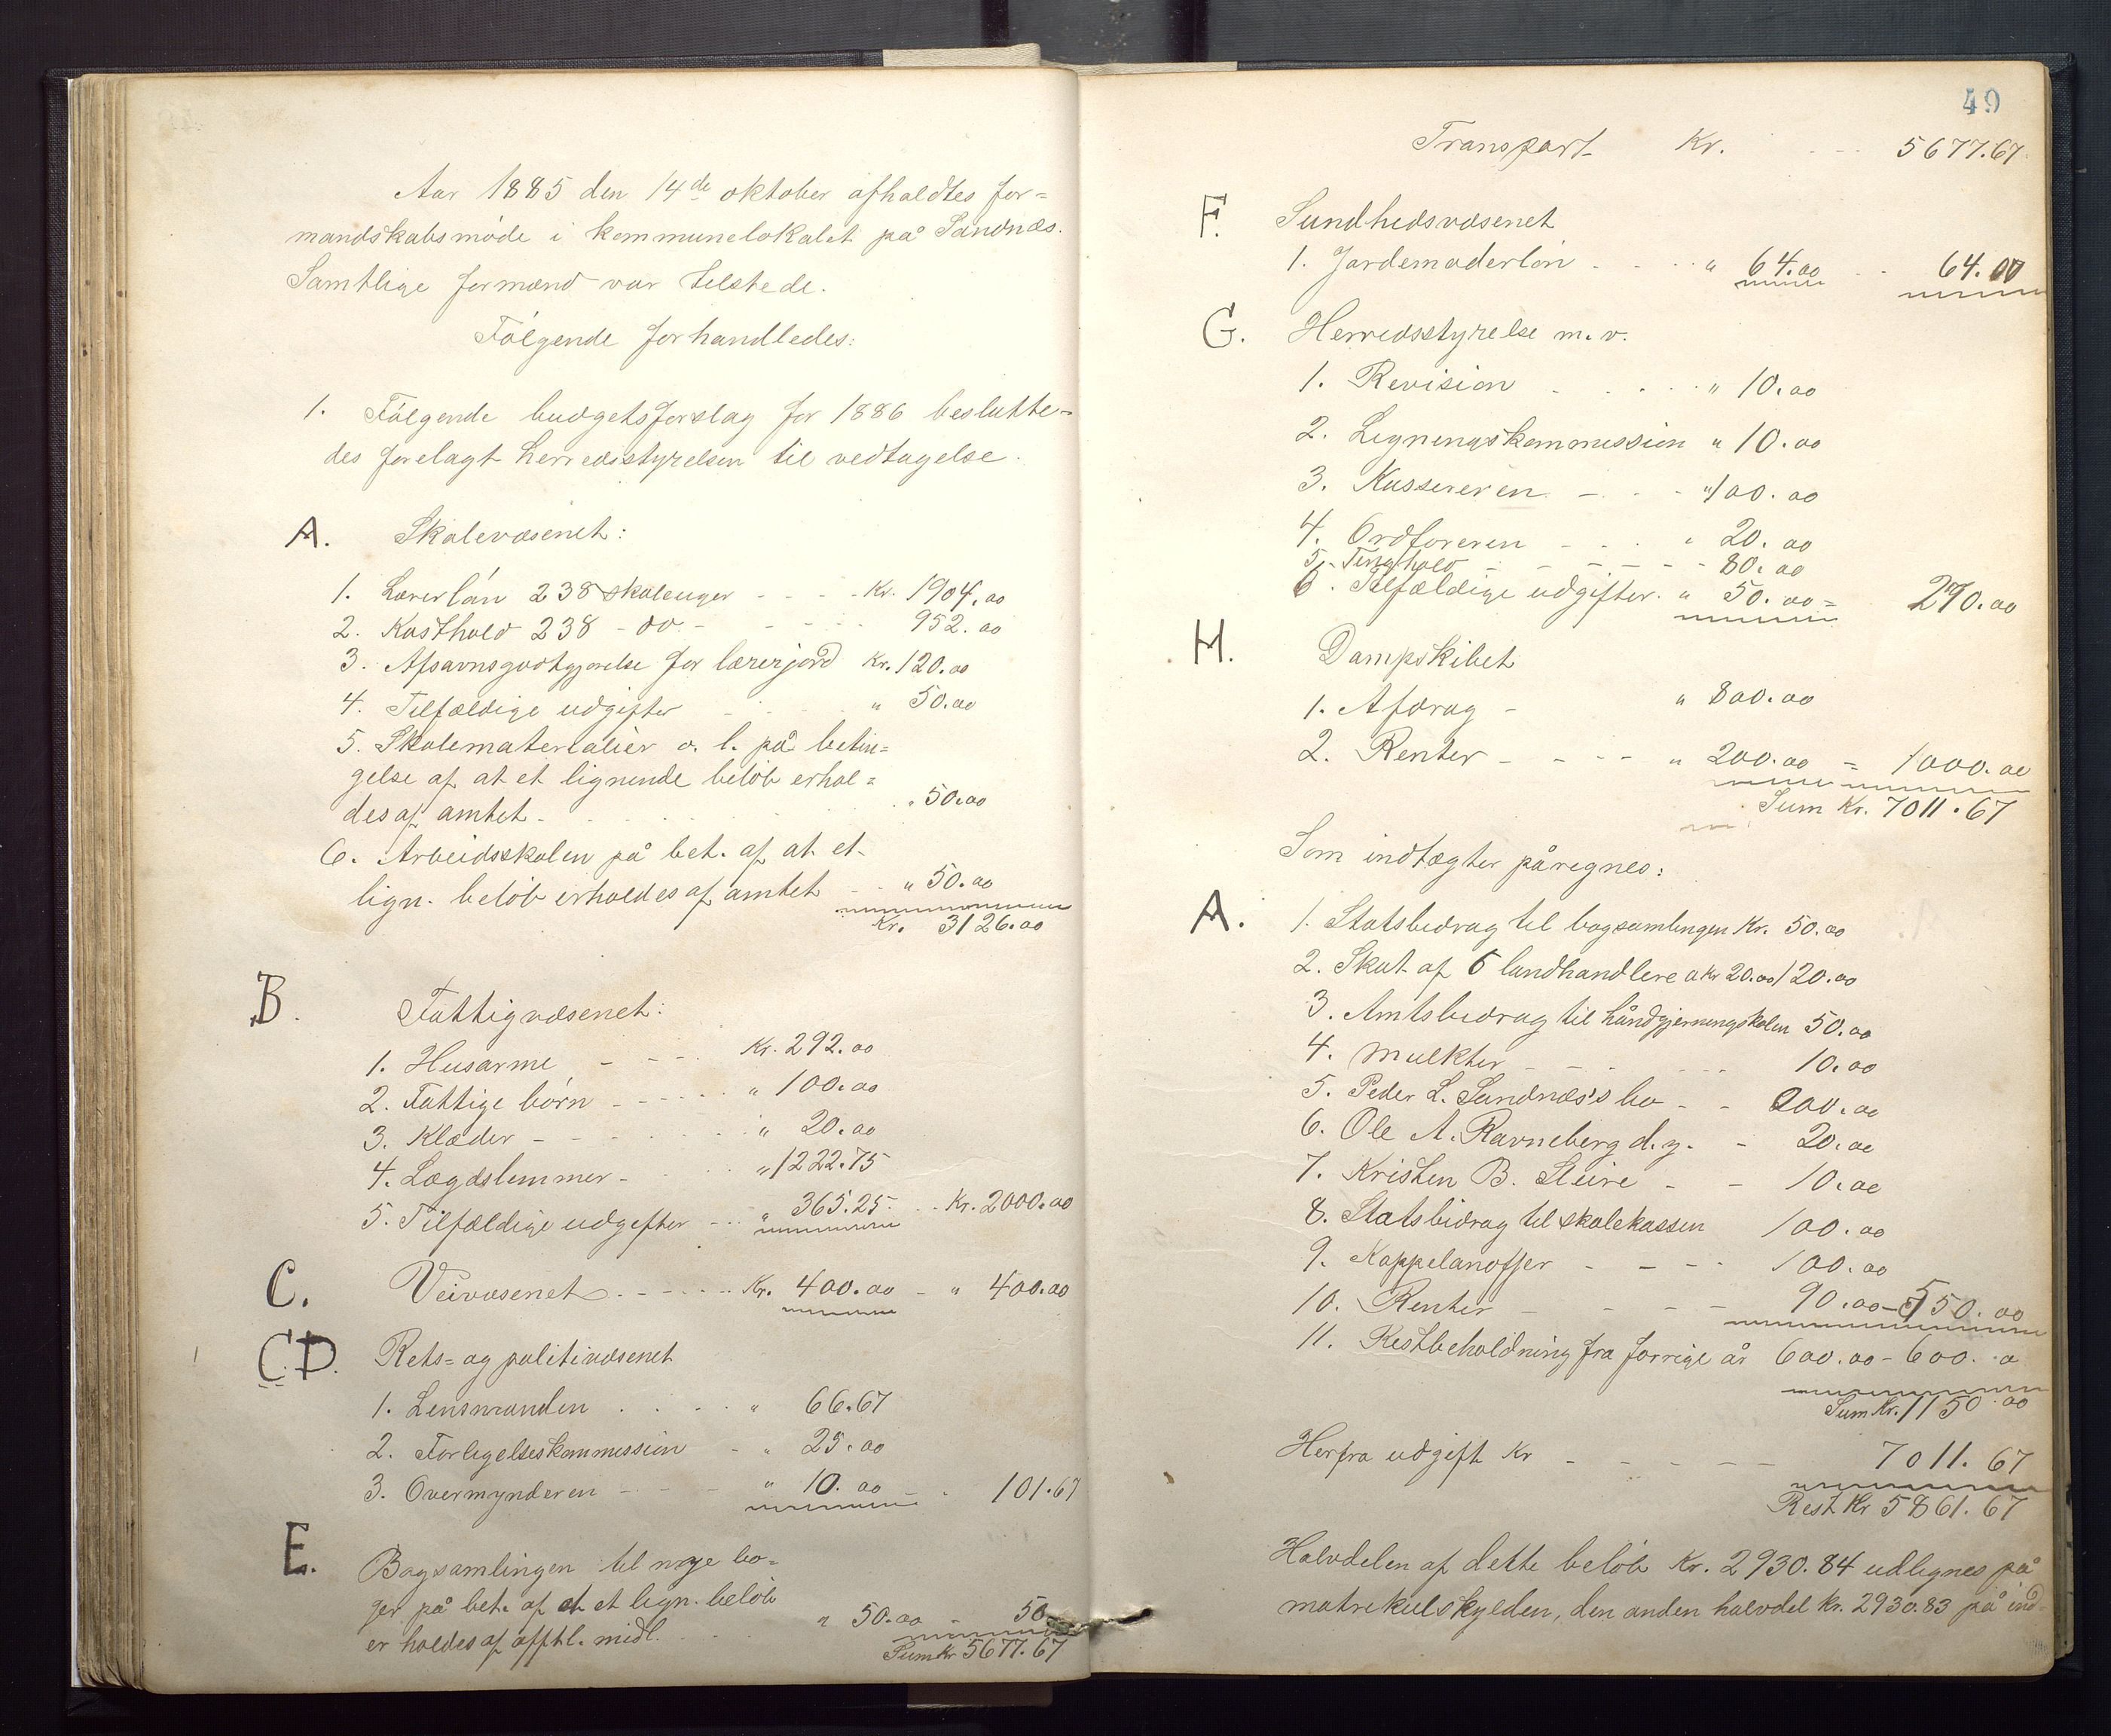 Aar 1885 den 14de oktober afholdtes for=
mandskabsmøde i kommunelokalet på Sandnæs.
Samtlige formænd var tilstede.
Følgende forhandledes:
1. Følgende budgetsforslag for 1886 beslutte=
des forelagt herredsstyrelsen til vedtagelse.
A. Skolevæsenet:
1. Lærerløn 238 skoleuger - - - - Kr. 1904.00
2. Kosthold 238 - do - - - - - 952.00
3. Afsavnsgodtgjørelse for lærerjord Kr. 120.00
4. Tilfældige udgifter - - - " 50.00
5. Skolematerialier o. l. på betin=
gelse af at et lignende beløb erhol=
des af amtet - . . . . . " 50.00
6. Arbeidsskolen på bet. af at et
lign. beløb erholdes af amtet - - " 50.00
Kr. 3126.00
B. Fattigvæsenet:
1. Husarme - - - - Kr. 292.00
2. Fattige børn - - - - - " 100.00
3. Klæder - - - - - - " 20.00
4. Lægdslemmer - - - " 1222.75
5. Tilfældige udgifter - - - " 365.25 - - Kr. 2000.00
C. Veivæsenet - - - - - Kr. 400.00 - " 400.00
C. D. Rets= og politivæsenet
1. Lensmanden . . - - " 66.67
2. Forligelseskommission - " 25.00
3. Overmynderen - - - - " 10.00 - - 101.67
E. Bogsamlingen til nye bø=
ger på bet. af at et lign. beløb
erholdes af offtl. midl. - - - " 50.00 - 50
Sum Kr 5677.67
49
Transport Kr. - - - 5677.67
F. Sundhedsvæsenet
1. Jordemoderløn - - - - " 64.00 - - 64.00
G. Herredsstyrelse m. v.
1. Revision - - - - " 10.00
2. Ligningskommission " 10.00
3. Kassereren - - - - " 100.00
4. Ordføreren - - - " 20.00
5. Tinghold - - - - - - 80.00
6. Tilfældige udgifter. " 50.00 = 270.00
H. Dampskibet
1. Afdrag - " 800.00
2. Renter - - - - " 200.00 = 1000.00
Sum Kr. 7011.67
Som indtægter påregnes:
A. 1. Statsbidrag til bogsamlingen Kr. 50.00
2. Skat af 6 landhandlere a kr 20.00 120.00
3. Amtsbidrag til håndgjerningskolen 50.00
4. Mulkter - - - - - - 10.00
5. Peder L. Sandnæs's bo - - 00.00
6. Ole A. Ravneberg d. y. - 20.00
7. Kristen B. Steire - - 10.00
8. Statsbidrag til skolekassen 100.00
9. Kappelanoffer - - - - 100.00
10. Renter - - - - - 90.00 - 550.00
11. Restbeholdning fra forrige år 600.00 - 600.0
Sum Kr. 1150.00
Herfra udgift Kr - - - - - - 7011.67
Rest Kr 5861.67
Halvdelen af dette beløb Kr. 2930.84 udlignes på
matrikulskylden, den anden halvdel kr. 2930.83 på ind-